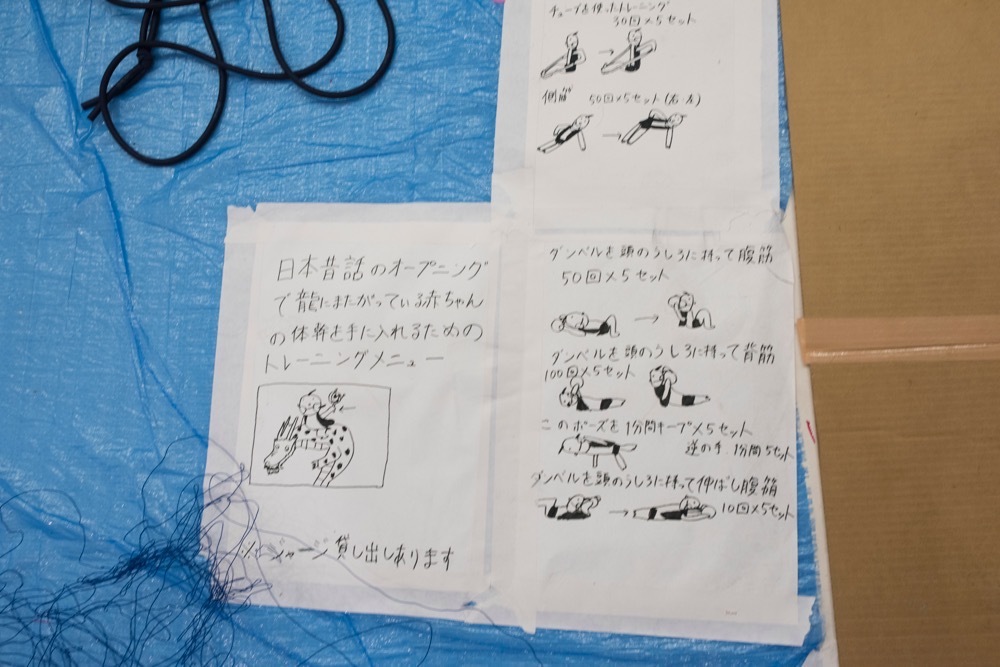 チューブを使ったトレーニング
30回×5セット
側筋 50回×5セット(右・左)
日本昔話のオープニング
で龍にまたがっている赤ちゃん
の体幹を手に入れるための
トレーニングメニュー
※ジャージ貸し出しあります
ダンベルを頭のうしろに持って腹筋
50回×5セット
ダンベルを頭のうしろに持って背筋
100回×5セット
このポーズを1分間キープ×5セット
逆の手 1分間5セット
ダンベルを頭のうしろに持って伸ばし腹筋
10回×5セット